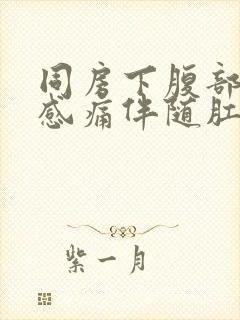 同房下腹部
感痛伴随肛
紫一月